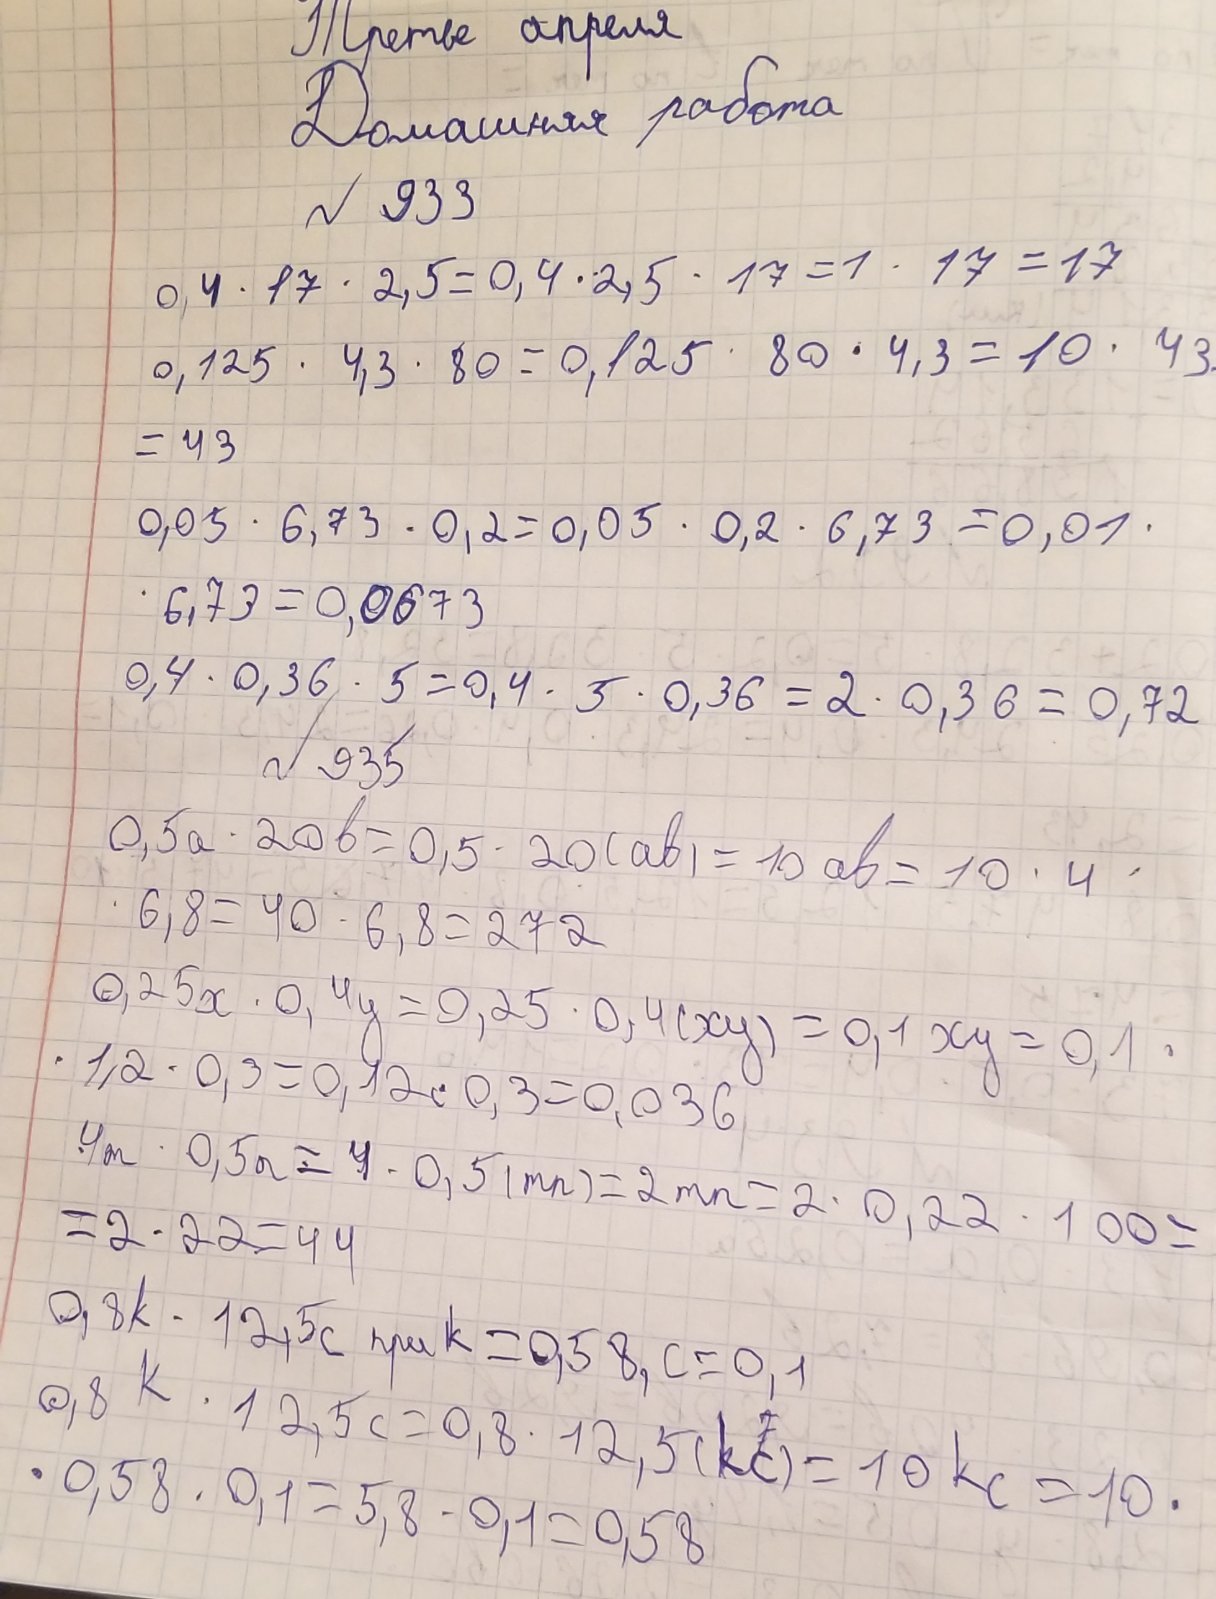 Третье апреля
Домашняя работа
№ 933
0,4 · 17 · 2,5 = 0,4 · 2,5 · 17 = 1 · 17 = 17
0,125 · 4,3 · 80 = 0,125 · 80 · 4,3 = 10 · 43
= 43
0,05 · 6,73 · 0,2 = 0,05 · 0,2 · 6,73 = 0,01 ·
· 6,73 = 0,0673
0,4 · 0,36 · 5 = 0,4 · 5 · 0,36 = 2 · 0,36 = 0,72
№ 935
0,5a · 20b = 0,5 · 20(ab) = 10ab = 10 · 4 ·
· 6,8 = 40 · 6,8 = 272
0,25x · 0,4y = 0,25 · 0,4(xy) = 0,1xy = 0,1 ·
· 1,2 · 0,3 = 0,12 · 0,3 = 0,036
4m · 0,5n = 4 · 0,5(mn) = 2mn = 2 · 0,22 · 100 =
= 2 · 22 = 44
0,8k · 12,5c при k = 0,58, c = 0,1
0,8k · 12,5c = 0,8 · 12,5(kc) = 10kc = 10 ·
· 0,58 · 0,1 = 5,8 · 0,1 = 0,58